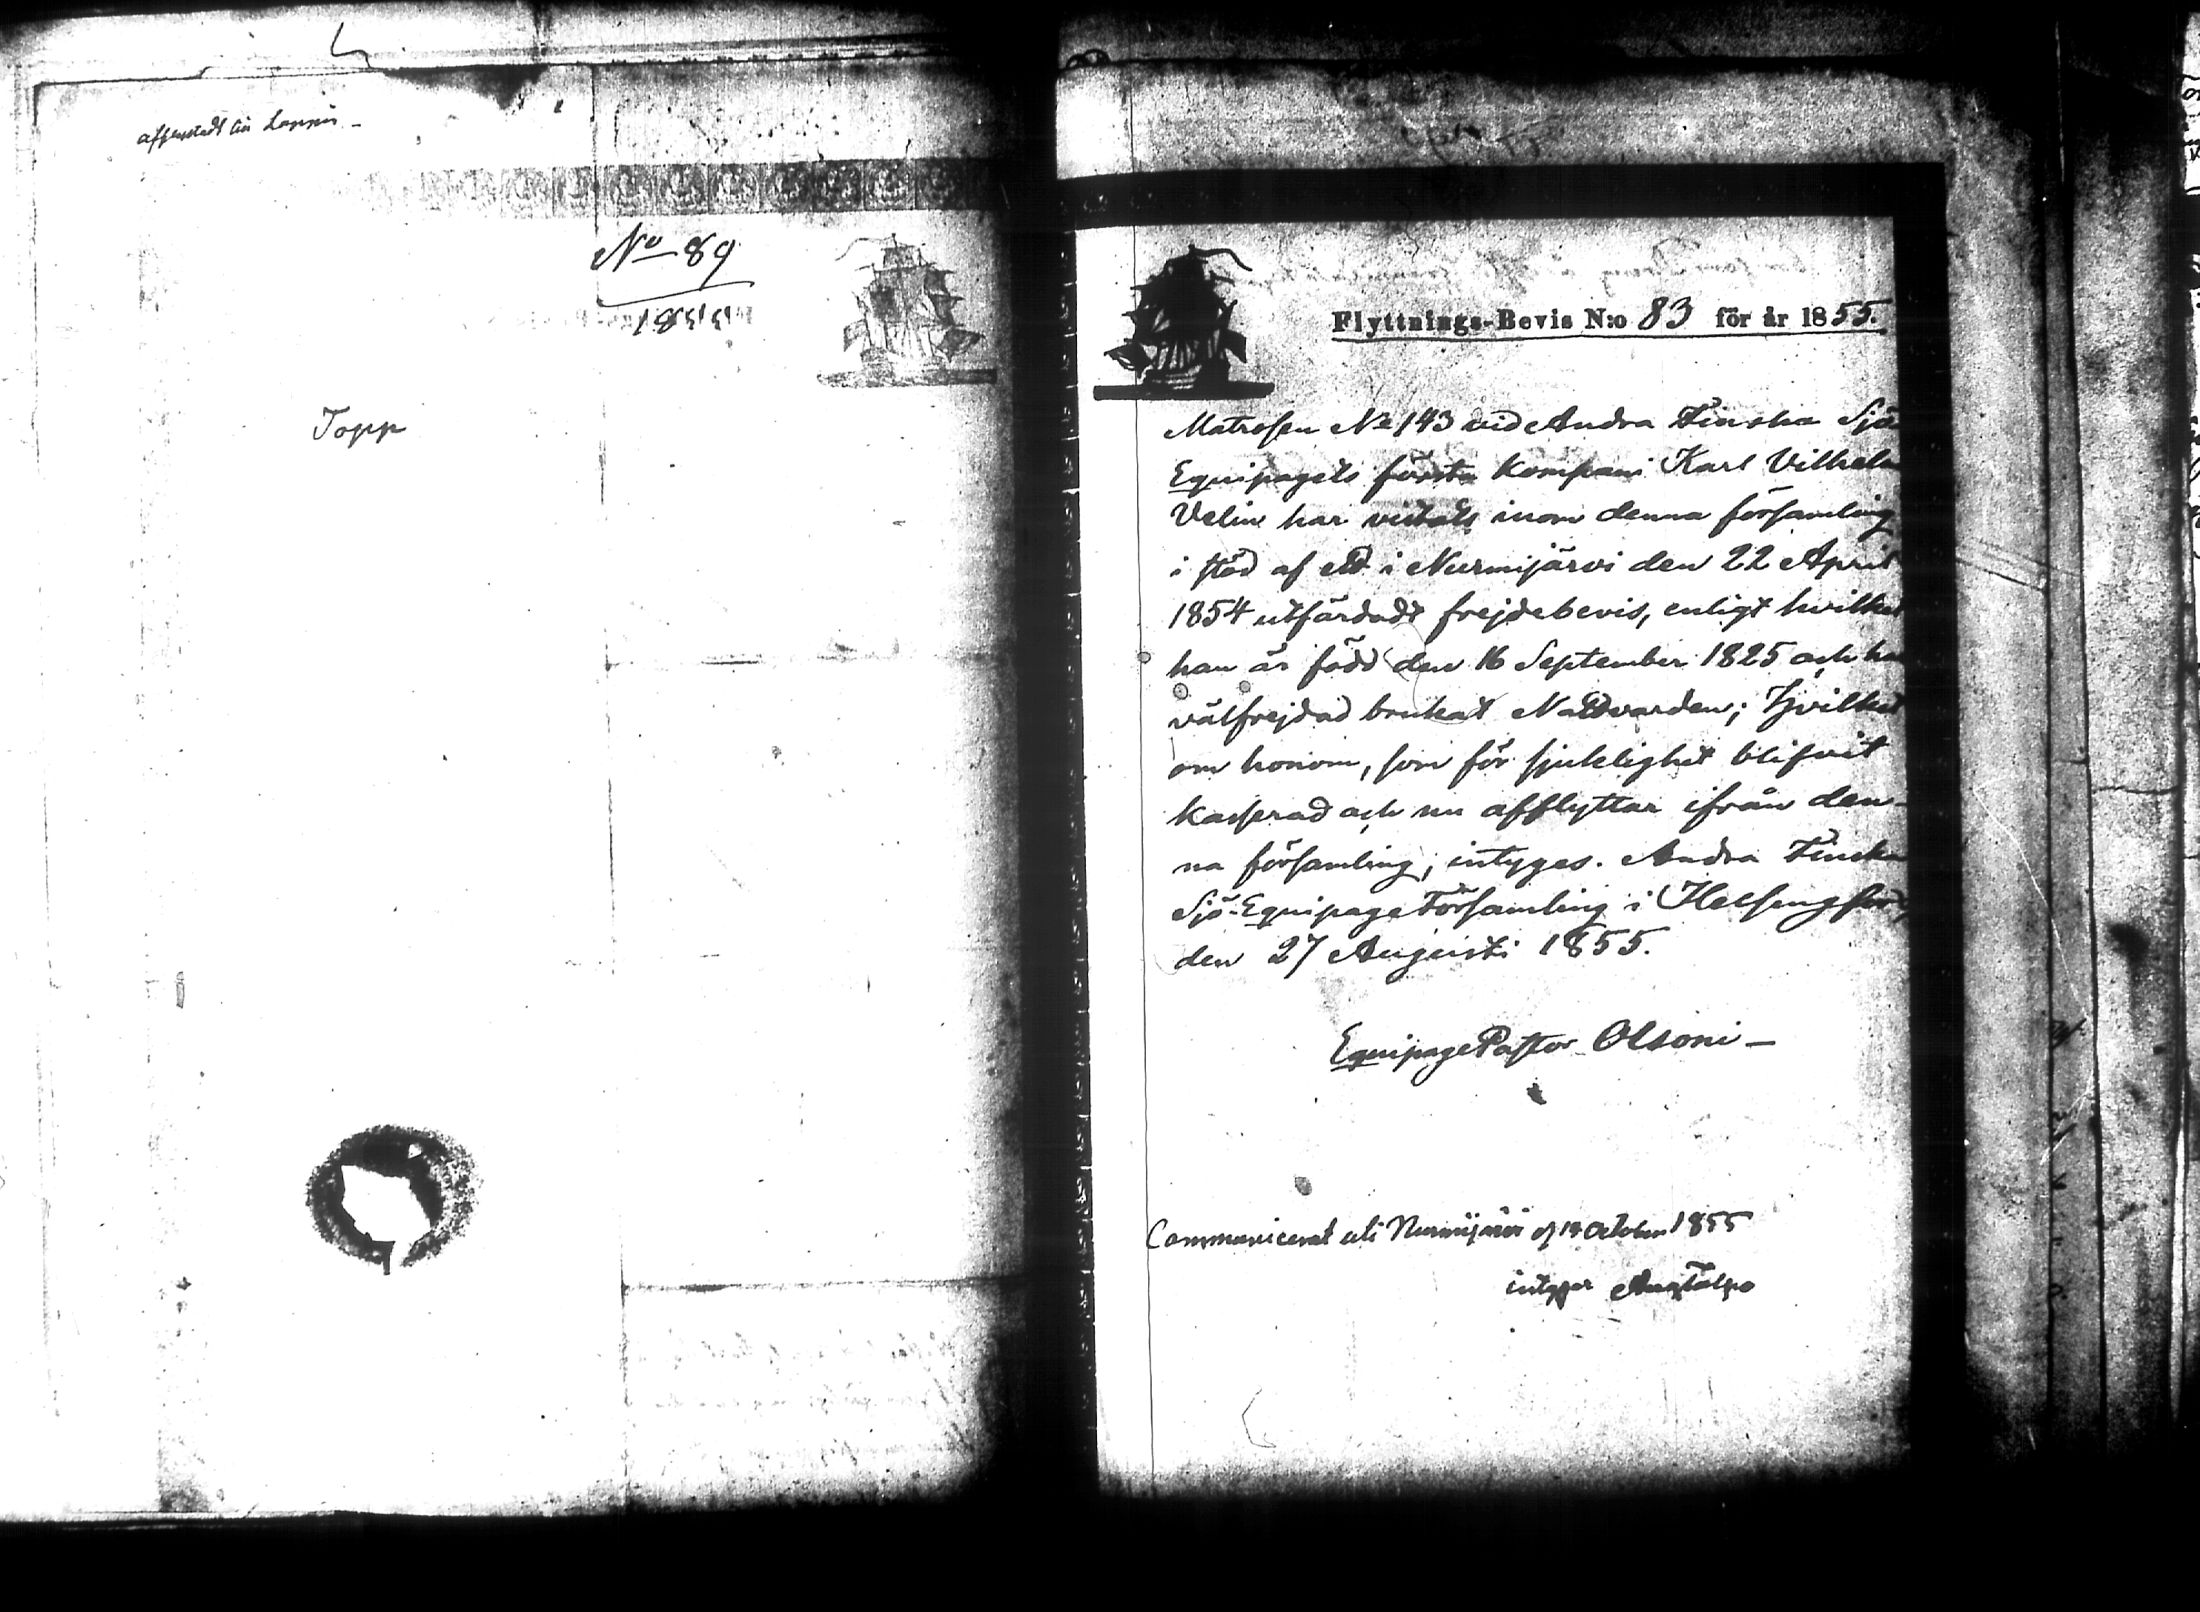 No 89
1855
Topp
Flyttnings-Bevis N:o 83 för år 1855.
Matrosen No 143 vid Andra Finska Sjö
Equipagets första Kompani Karl Vilhelm
Velin har vistats inom denna församling
i stöd af ett i Nurmijärvi den 22 April
1854 utfärdadt frejdebevis, enligt hvilket
han är född den 16 September 1825 och ha
välfrejdad brukat Nattvarden; Hvilket
om honom, som för sjuklighet blifvit
kasserad och nu afflyttar ifrån den-
na församling, intygas. Andra Finska
Sjö-Equipage Församling i Helsingfors,
den 27 Augusti 1855.
Equipage Pastor Olsoni
Communicerat uti Nurmijärvi October 1855
intyger